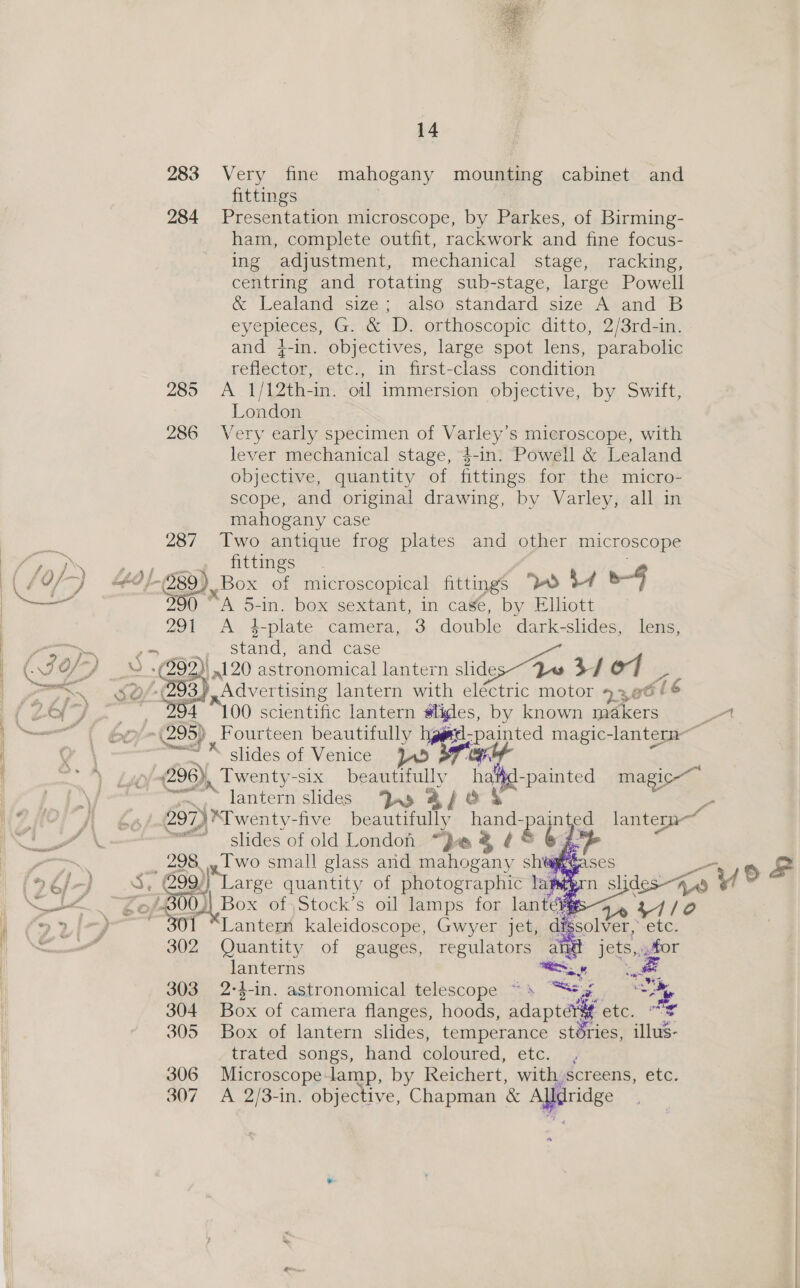 14
283 Very fine mahogany mounting cabinet and
fittings
284 Presentation microscope, by Parkes, of Birming-
ham, complete outfit, rackwork and fine focus-
ing adjustment, mechanical stage, racking,
centring and rotating sub-stage, large Powell
& Lealand size; also standard size A and B
eyepieces, G. & D. orthoscopic ditto, 2/3rd-in.
and ¼-in. objectives, large spot lens, parabolic
reflector, etc., in first-class condition
285 A 1/12th-in. oil immersion objective, by Swift,
London
286 Very early specimen of Varley's microscope, with
lever mechanical stage, ¼-in. Powell & Lealand
objective, quantity of fittings for the micro-
scope, and original drawing, by Varley, all in
mahogany case
287 Two antique frog plates and other microscope
fittings
(10/-) 40/- 289 Box of microscopical fittings
290 A 5-in. box sextant, in case, by Elliott
291 A ¼-plate camera, 3 double dark-slides, lens,
stand, and case
(30/-) 292 120 astronomical lantern slides
293 Advertising lantern with electric motor
(26/-) 294 100 scientific lantern slides, by known makers
295 Fourteen beautifully hand-painted magic-lantern
slides of Venice
296 Twenty-six beautifully hand-painted magic
lantern slides
297 Twenty-five beautifully hand-painted lantern
slides of old London
298 Two small glass and mahogany showcases
(26/-) 299 Large quantity of photographic lantern slides
300 Box of Stock's oil lamps for lanterns
301 Lantern kaleidoscope, Gwyer jet, dissolver, etc.
302 Quantity of gauges, regulators and jets, for
lanterns
303 2·¼-in. astronomical telescope
304 Box of camera flanges, hoods, adapters etc.
305 Box of lantern slides, temperance stories, illus-
trated songs, hand coloured, etc.
306 Microscope lamp, by Reichert, with screens, etc.
307 A 2/3-in. objective, Chapman & Alldridge